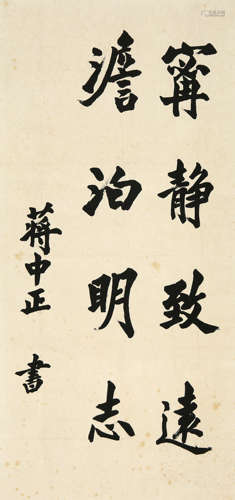 寧静致遠
澹泊明志
蔣中正 書